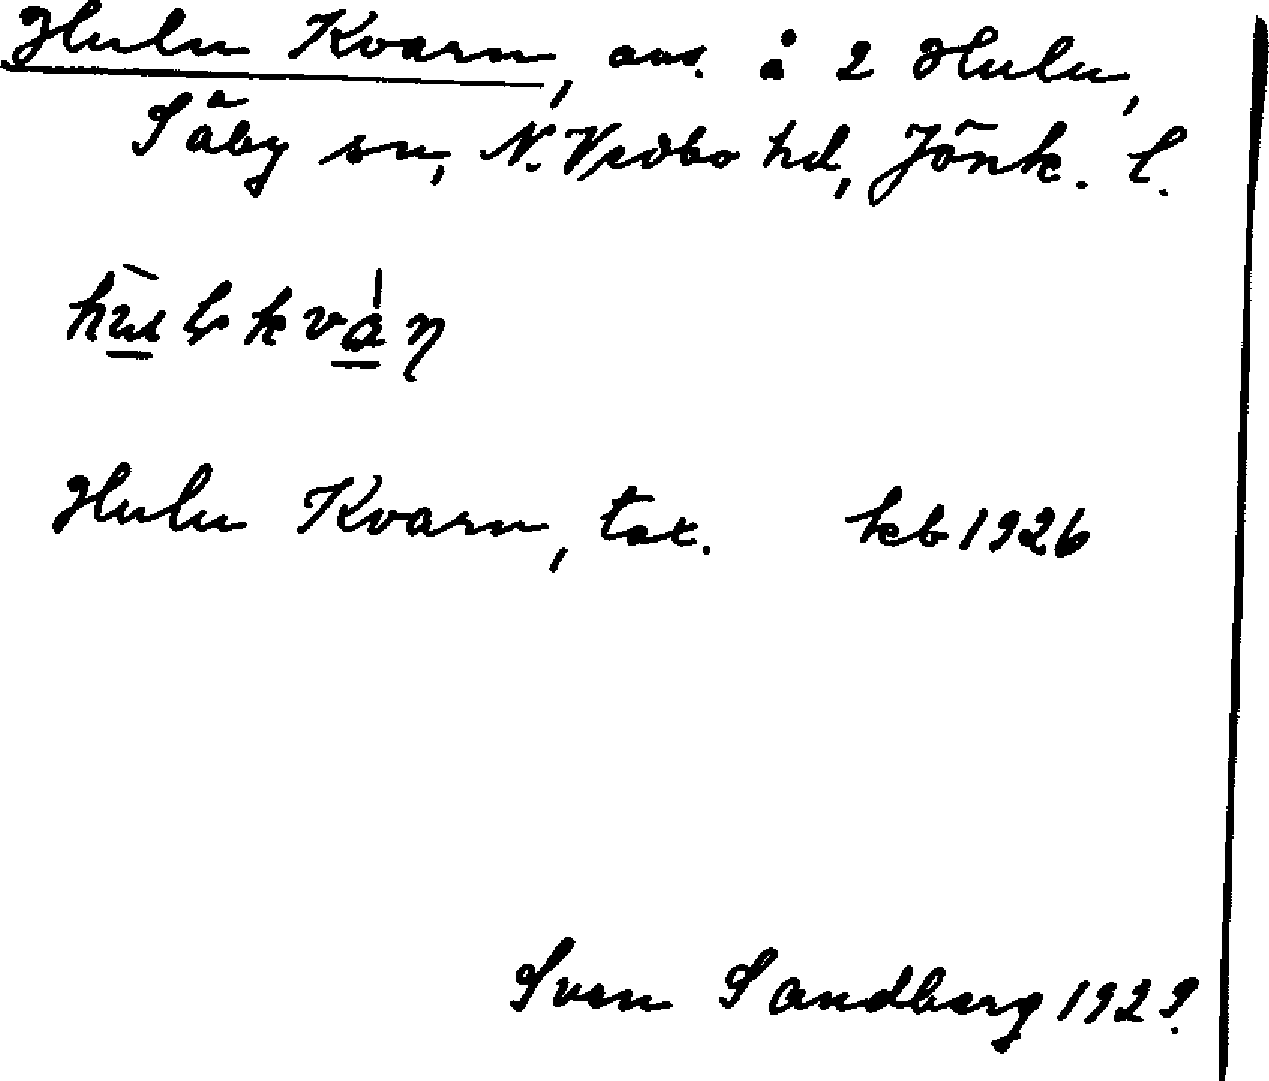 Hulu Kvarn, avs. å 2 Hulu,
Säby sn, N. Vedbo hd, Jönk. l.
Hulu Kvarn, tax. kb 1926
Sven Sandberg 1929.